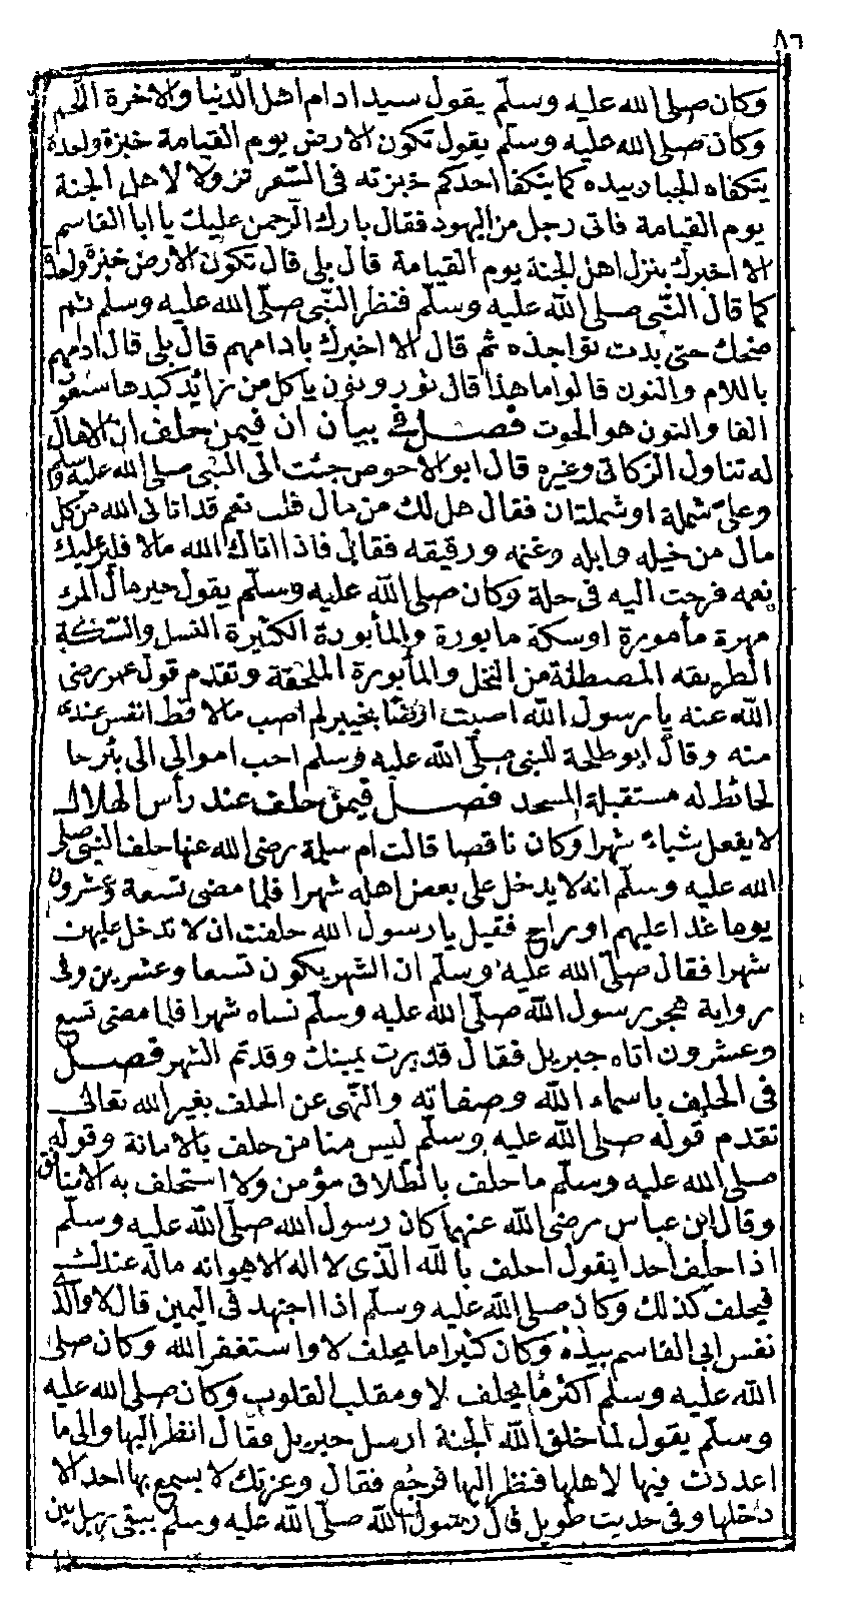 ٨٦
وكان صلى الله عليه وسلم يقول سيد ادام اهل الدنيا والاخرة اللحم
وكان صلى الله عليه وسلم يقول تكون الارض يوم القيامة خبزة واحدة
يتكفاه الجبار بيده كما يتكفا احدكم خبزته في السفر نزولا لاهل الجنة
يوم القيامة فاتى رجل من اليهود فقال بارك الرحمن عليك يا ابا القاسم
الا اخبرك بنزل اهل الجنة يوم القيامة قال بلى قال تكون الارض خبزة واحدة
كما قال النبي صلى الله عليه وسلم فنظر النبي صلى الله عليه وسلم ثم
ضحك حتى بدت نواجذه ثم قال الا اخبرك بادامهم قال بلى قال ادمهم
باللام والنون قالوا ما هذا قال ثور ونون ياكل من زائد كبدها سبعون
الفا والنون هو الحوت فصل في بيان ان فيمن حلف ان لا مال
له تناول الزكاتى وغيره قال ابو الاحوص جئت الى النبي صلى الله عليه وسلم
وعلي شملة او شملتان فقال هل لك من مال قلت نعم قد اتانى الله من كل
مال من خيله وابله وغنمه ورقيقه فقال فاذا اتاك الله مالا فلير عليك
نعمه فرحت اليه في حلة وكان صلى الله عليه وسلم يقول خير مال المرء
مهرة مأمورة او سكة مابورة والمأبورة الكثيرة النسل والسكة
الطريقه المصطلة من النخل والمأبورة الملحقة وتقدم قول عمر رضى
الله عنه يا رسول الله اصبت ارضا بخيبر لم اصب مالا قط انفس عندى
منه وقال ابو طلحة للنبى صلى الله عليه وسلم احب اموالي الى بئر حا
لحائط له مستقبلة المسجد فصل فيمن حلف عند رأس الهلال
لا يفعل شياء شهرا وكان ناقصا قالت ام سلمة رضى الله عنها حلف النبى صلى
الله عليه وسلم انه لا يدخل على بعض اهله شهرا فلما مضى تسعة وعشرون
يوما غدا عليهم او راح فقيل يا رسول الله حلفت ان لا تدخل عليهن
شهرا فقال صلى الله عليه وسلم ان الشهر يكون تسعا وعشرين وفى
رواية هجر رسول الله صلى الله عليه وسلم نساه شهرا فلما مضى تسع
وعشرون اتاه جبريل فقال قد برت يمينك وقد تم الشهر فصل
فى الحلف باسماء الله وصفاته والنهى عن الحلف بغير الله تعالى
تقدم قوله صلى الله عليه وسلم ليس منا من حلف بالامانة وقوله
صلى الله عليه وسلم ما حلف بالطلاق مؤمن ولا استحلف به الا منافق
وقال ابن عباس رضى الله عنهما كان رسول الله صلى الله عليه وسلم
اذا حلف احدا يقول احلف بالله الذى لا اله الا هو انه ماله عندك شيء
فيحلف كذلك وكان صلى الله عليه وسلم اذا اجتهد فى اليمين قال لا والذى
نفس ابى القاسم بيده وكان كثيرا ما يحلف لا واستغفر الله وكان صلى
الله عليه وسلم اكثر ما يحلف لا ومقلب القلوب وكان صلى الله عليه
وسلم يقول لما خلق الله الجنة ارسل جبريل فقال انظر اليها والى ما
اعددت فيها لاهلها فنظر اليها فرجع فقال وعزتك لا يسمع بها احد الا
دخلها وفى حديث طويل قال رسول الله صلى الله عليه وسلم يبقى رجل بين